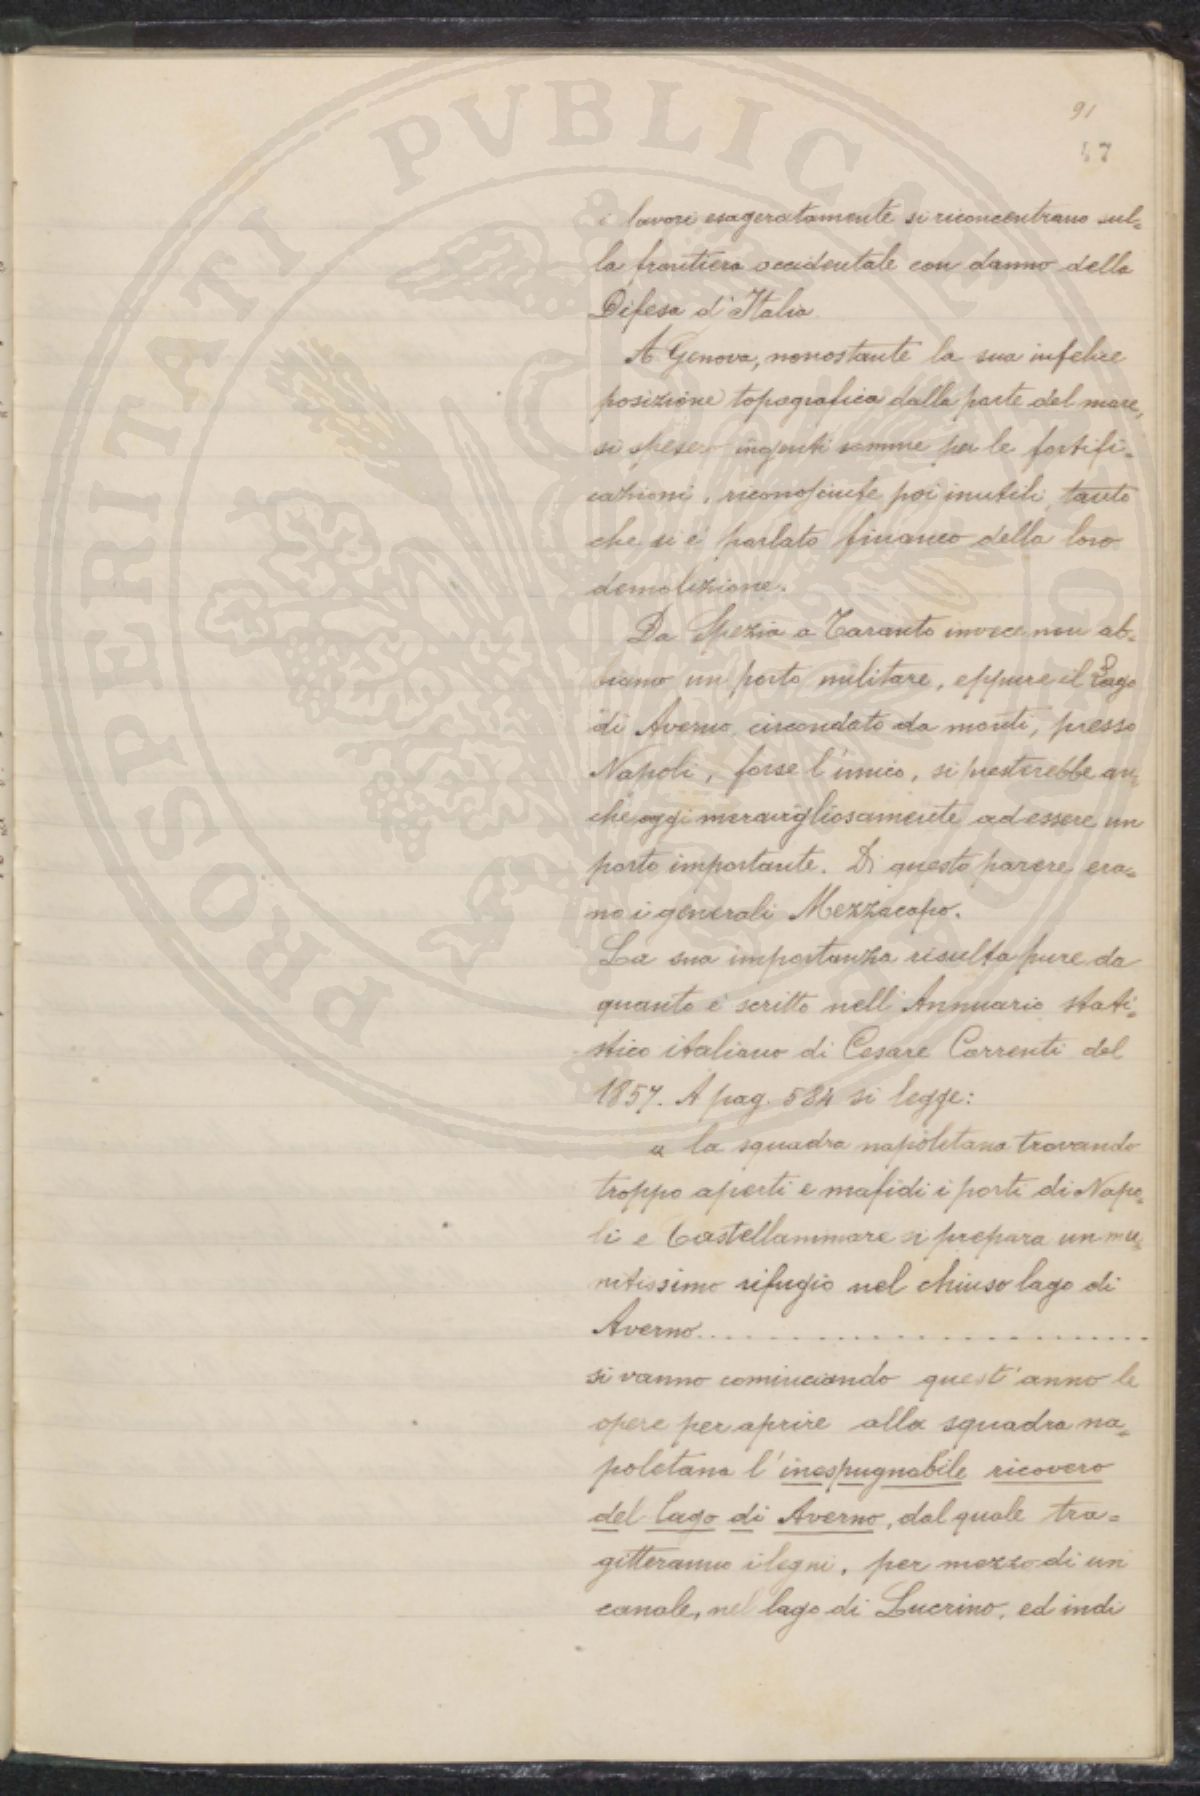 PROSPERITATI PVBLICAE AVGENDAE
91
57
i lavori esageratamente si riconcentrano sul=
la frontiera occidentale con danno della
Difesa d'Italia
A Genova, nonostante la sua infelice
posizione topografica dalla parte del mare,
si spesero ingenti somme per le fortifi=
cazioni, riconosciute poi inutili, tanto
che si è parlato financo della loro
demolizione.
Da Spezia a Taranto invece non ab=
biamo un porto militare, eppure il Lago
di Averno, circondato da monti, presso
Napoli, forse l'unico, si presterebbe an=
che oggi meravigliosamente ad essere un
porto importante. Di questo parere era=
no i generali Mezzacapo.
La sua importanza risulta pure da
quanto è scritto nell'Annuario stati=
stico italiano di Cesare Correnti del
1857. A pag. 584 si legge:
« la squadra napoletana trovando
troppo aperti e mafidi i porti di Napo=
li e Castellammare si prepara un mu=
nitissimo rifugio nel chiuso lago di
Averno......................
si vanno cominciando quest'anno le
opere per aprire alla squadra na=
poletana l'inespugnabile ricovero
del Lago di Averno, dal quale tra=
gitteranno i legni, per mezzo di un
canale, nel lago di Lucrino, ed indi